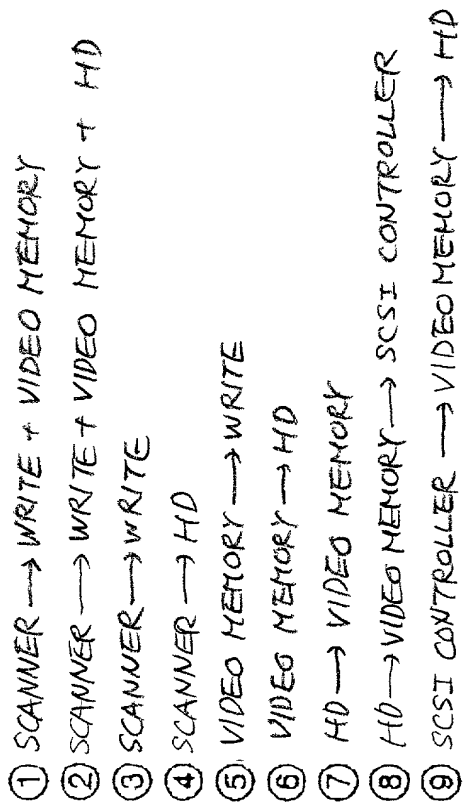 ① SCANNER → WRITE + VIDEO MEMORY
② SCANNER → WRITE + VIDEO MEMORY + HD
③ SCANNER → WRITE
④ SCANNER → HD
⑤ VIDEO MEMORY → WRITE
⑥ VIDEO MEMORY → HD
⑦ HD → VIDEO MEMORY
⑧ HD → VIDEO MEMORY → SCSI CONTROLLER
⑨ SCSI CONTROLLER → VIDEO MEMORY → HD